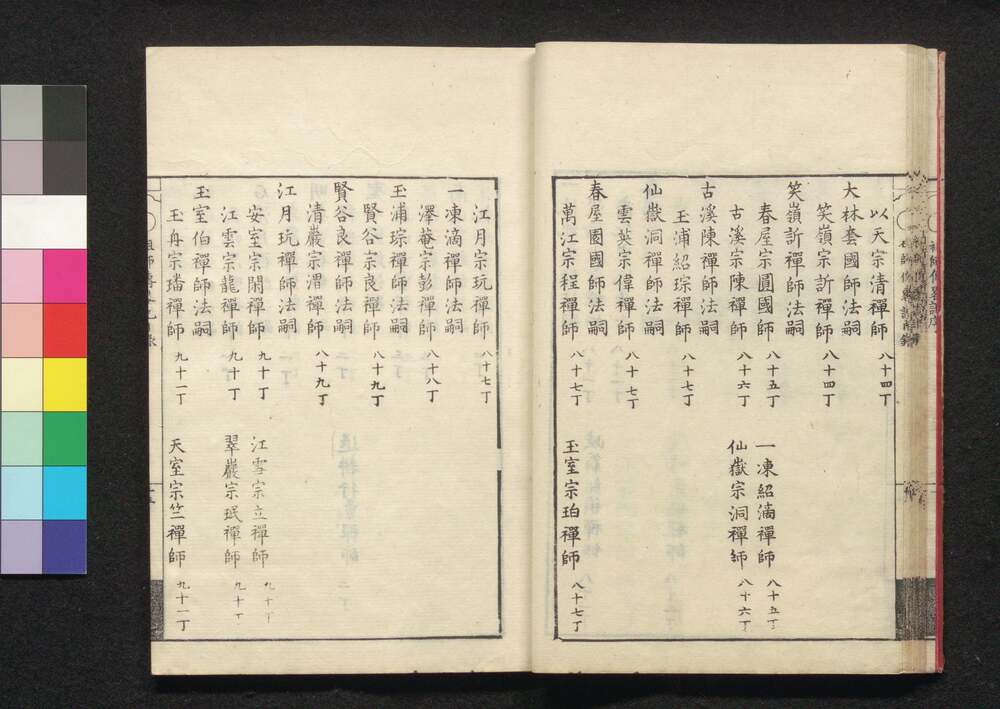 以天宗清禪師 八十四丁
大林套國師法嗣
笑嶺宗訢禪師 八十四丁
笑嶺訢禪師法嗣
春屋宗園國師 八十五丁 一凍紹滴禪師 八十五丁
古溪宗陳禪師 八十六丁 仙嶽宗洞禪師 八十六丁
古溪陳禪師法嗣
玉浦紹琮禪師 八十七丁
仙嶽洞禪師法嗣
雲英宗偉禪師 八十七丁
春屋園國師法嗣
萬江宗程禪師 八十七丁 玉室宗珀禪師 八十七丁
江月宗玩禪師 八十七丁
一凍滴禪師法嗣
澤菴宗彭禪師 八十八丁
玉浦琮禪師法嗣
賢谷宗良禪師 八十九丁
賢谷良禪師法嗣
清巖宗渭禪師 八十九丁
江月玩禪師法嗣
安室宗閑禪師 九十丁 江雪宗立禪師 九十丁
江雲宗龍禪師 九十丁 翠巖宗珉禪師 九十丁
玉室伯禪師法嗣
玉舟宗璠禪師 九十一丁 天室宗竺禪師 九十一丁